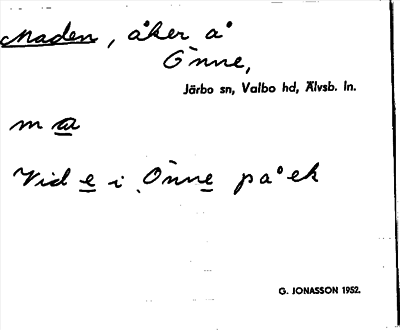 Maden, åker å
Önne,
Järbo sn, Valbo hd, Älvsb. ln.
m a
Vid e i Önne på ek
G. JONASSON 1952.